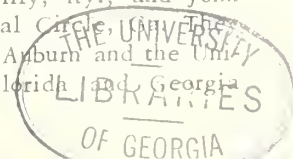 al Circle, Ga. The
Auburn and the Uni-
lorida and Georgia
THE UNIVERSITY
LIBRARIES
OF GEORGIA